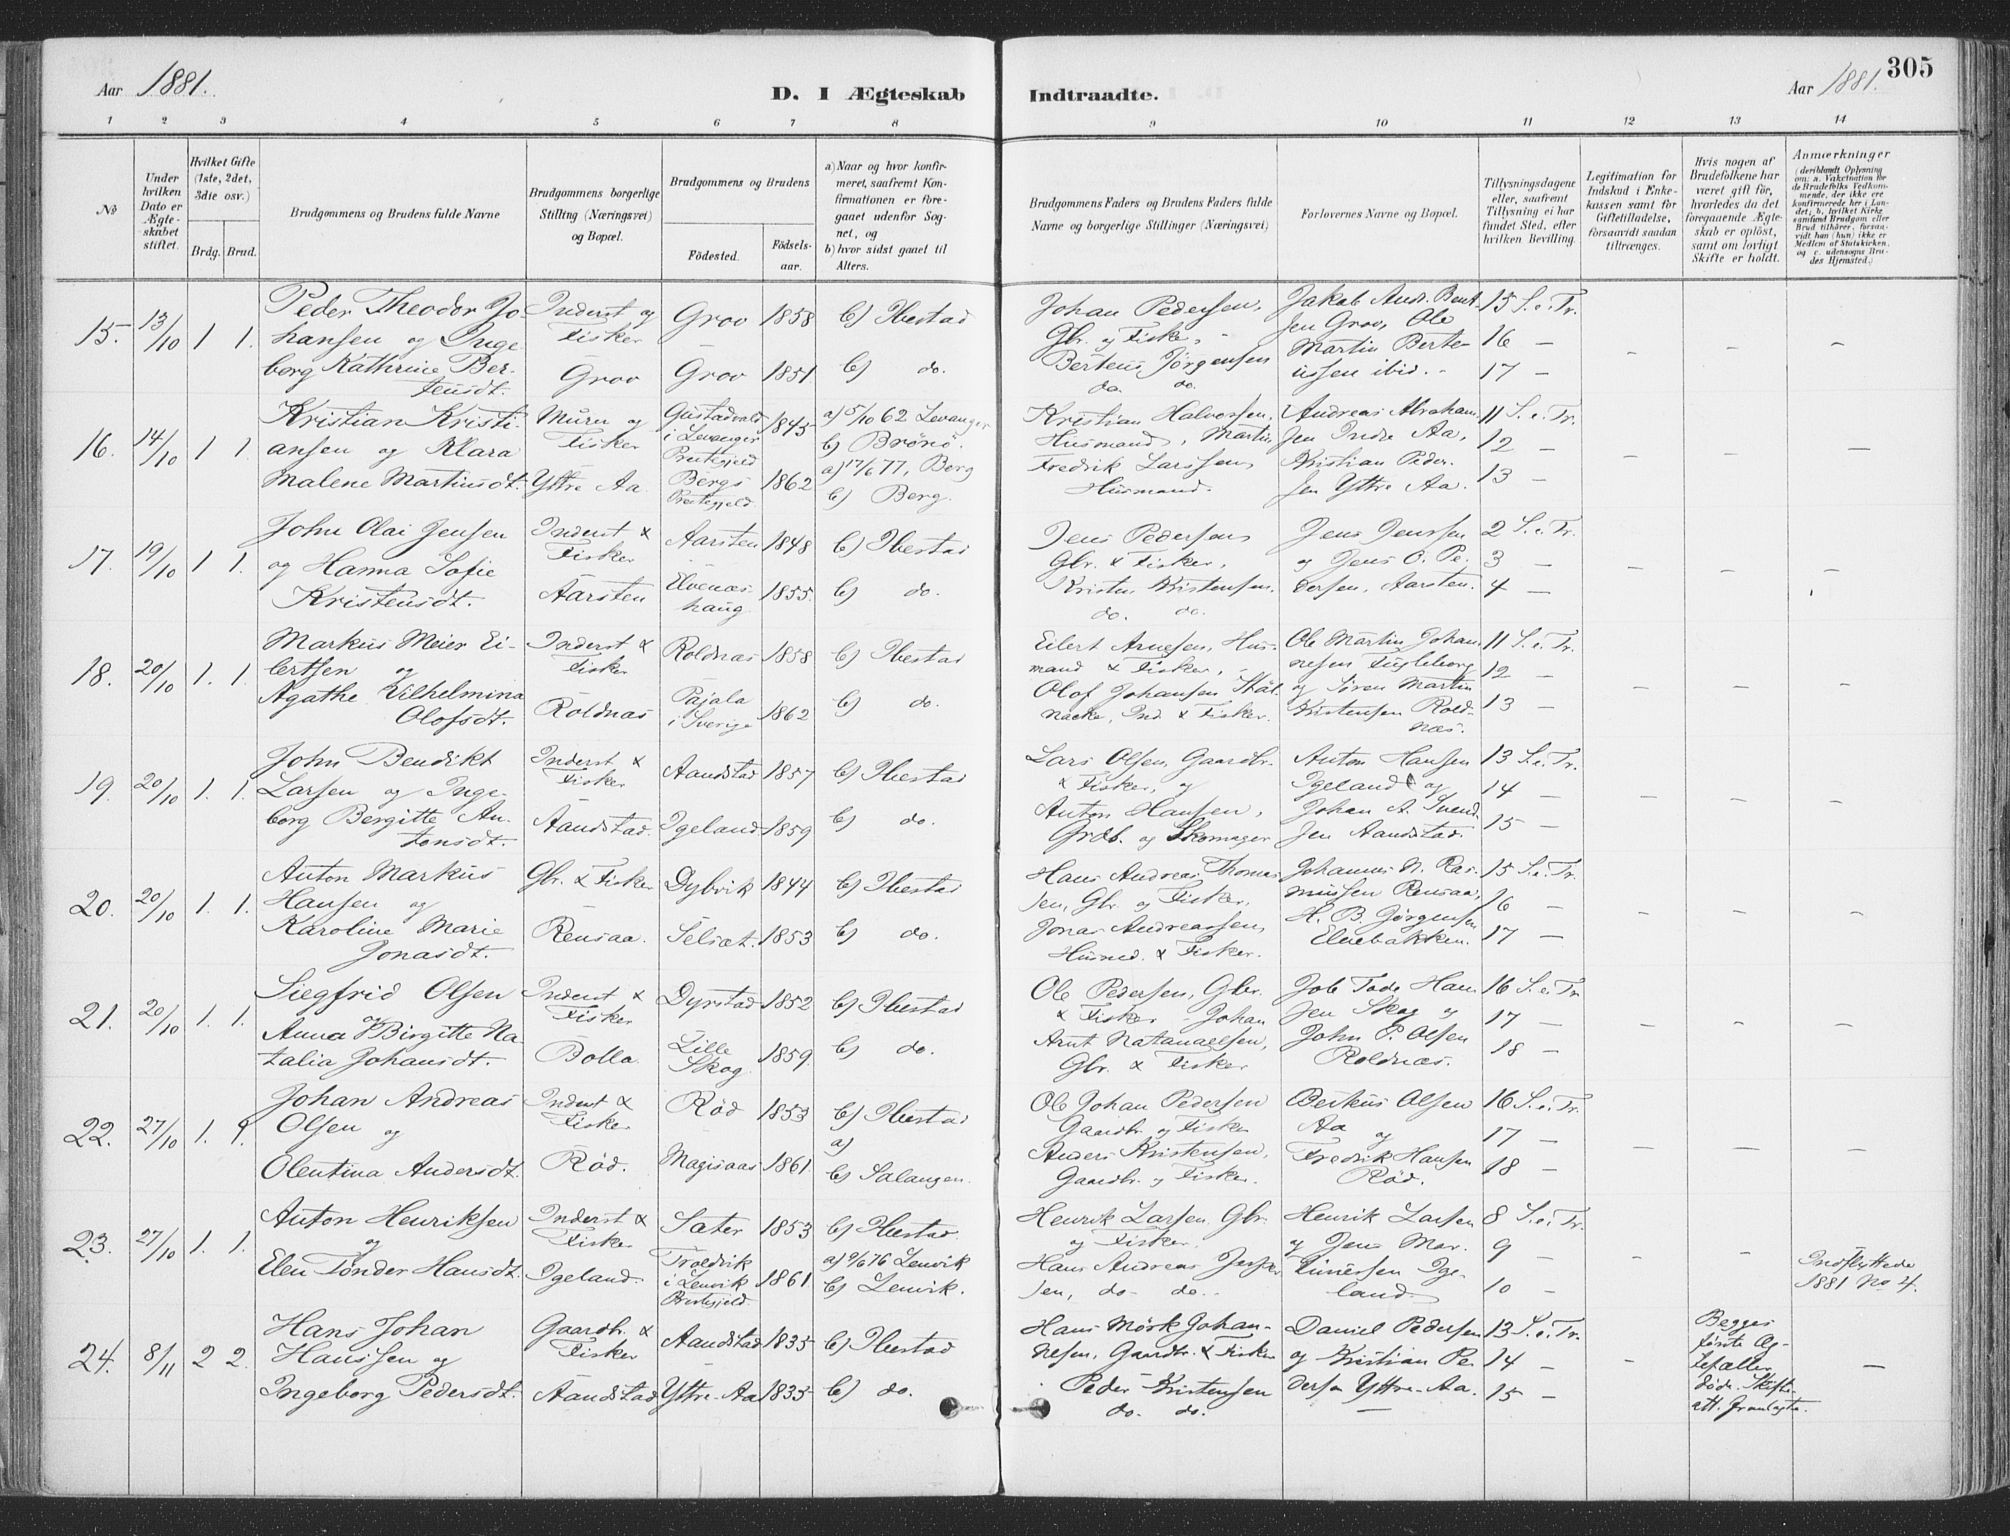 Aar 1881.
D. I Ægteskab Indtraadte.
Aar 1881.
305
1 2 3 4 5 6 7 8 9 10 11 12 13 14
No
Under hvilken Dato er Ægteskabet stiftet.
Hvilket Gifte (1ste, 2det, 3die osv.)
Brdg. Brud.
Brudgommens og Brudens fulde Navne
Brudgommens borgerlige Stilling (Næringsvei) og Bopæl.
Brudgommens og Brudens
Födested.
Födselsaar.
a) Naar og hvor konfirmeret, saafremt Konfirmationen er foregaaet udenfor Sognet, og
b) hvor sidst gaaet til Alters.
Brudgommens Faders og Brudens Faders fulde Navne og borgerlige Stillinger (Næringsvei)
Forlovernes Navne og Bopæl.
Tillysningsdagene eller, saafremt Tillysning ei har fundet Sted, efter hvilken Bevilling.
Legitimation for Indskud i Enkekassen samt for Giftetilladelse, forsaavidt saadan tiltrænges.
Hvis nogen af Brudefolkene har været gift för, hvorledes da det foregaaende Ægteskab er oplöst, samt om lovligt Skifte er holdt.
Anmærkninger
(deriblandt Oplysning om: a. Vakcination for de Brudefolks Vedkommende, der ikke ere konfirmerede her i Landet; b. hvilket Kirkesamfund Brudgom eller Brud tilhörer, forsaavidt han (hun) ikke er Medlem af Statskirken, og c. udensogns Brudes Hjemsted.)
15. 13/10 1 1. Peder Theodor Johansen og Ingeborg Kathrine Berteusdt. Inderst og Fisker Grov Grov 1858 b) Ibestad Grov 1851. b) do. Johan Pedersen, Gbr. og Fisker, Berteus Jørgensen do. do. Jakob Andr. Bentsen Grov, Ole Martin Berteussen ibid. 15 S. e. Tr. 16 — 17 —
16. 14/10 1 1. Kristian Kristiansen og Klara Malene Martinsdt. Murer og Fisker Yttre Aa. Gustadvald i Levanger Prestegjeld 1845 a) 5/10 62 Levanger b) Brönö. Bergs Prestegjeld 1862 a) 17/6 77, Berg b) Berg. Kristian Halvorsen, Husmand, Martin Fredrik Larssen, Husmand. Andreas Abrahamsen Indre Aa, Kristian Pedersen Yttre Aa. 11 S. e. Tr. 12 — 13 —
17. 19/10 1 1. John Olai Jensen og Hanna Sofie Kristensdt. Inderst & Fisker Aarsten Aarsten 1848 b) Ibestad Elvenæshaug 1855. b) do. Jens Pedersen Gbr. & Fisker, Kristen Kristensen, do. do. Jens Jenssen og Jens O. Pedersen, Aarsten. 2 S. e. Tr. 3 — 4 —
18. 20/10 1. 1. Markus Meier Eilertsen og Agathe Vilhelmina Olofsdt. Inderst & Fisker Roldnæs Roldnæs 1858 b) Ibestad Pajala i Sverige 1862 b) do. Eilert Arnesen, Husmand & Fisker, Olof Johansen Stålnacke, Ind & Fisker. Ole Martin Johannesen Fugleberg og Søren Martin Kristensen Roldnæs. 11 S. e. Tr. 12 — 13 —
19. 20/10 1. 1. John Bendikt Larsen og Ingeborg Bergitte Antonsdt. Inderst & Fisker Aandstad. Aandstad 1857 b) Ibestad Igeland 1859 b) do. Lars Olsen, Gaardbr. & Fisker, og Anton Hansen, Grdb. og Skomager Anton Hansen Igeland og Johan A. Svendsen Aandstad. 13 S. e. Tr. 14 — 15 —
20. 20/10 1. 1. Anton Markus Hansen og Karoline Marie Jonasdt. Gbr. & Fisker Rensaa. Dybvik 1844 b) Ibestad Selsæt. 1853 b) do. Hans Andreas Thomassen, Gbr. og Fisker, Jonas Andreassen, Husmd. & Fisker. Johannes N. Rasmussen Rensaa, H. B. Jørgensen Elvebakken. 15 S. e. Tr. 16 — 17 —
21. 20/10 1. 1. Siegfrid Olsen og Anna Birgitte Natalia Johansdt. Inderst & Fisker Bolla. Dyrstad 1852 b) Ibestad Lille Skog 1859. b) do. Ole Pedersen, Gbr. & Fisker Johan Arnt Natanaelsen, Gbr. & Fisker Job Tode Hansen Skog og John P. Olsen Roldnæs. 16 S. e. Tr. 17 — 18 —
22. 27/10 1. 1. Johan Andreas Olsen og Olentina Andersdt. Inderst & Fisker Rød. Rød 1853 b) Ibestad Magisaas 1861 a) b) Salangen. Ole Johan Pedersen Gaardbr. og Fisker Anders Kristensen, Gaardbr. og Fisker. Berkus Olsen Aa og Fredrik Hansen Rød. 16 S. e. Tr. 17 — 18 —
23. 27/10 1. 1. Anton Henriksen og Elen Tønder Hansdt. Inderst & Fisker Igeland. Sæter 1853 b) Ibestad. Troldvik i Lenvik Prestegjeld. 1861 a) 9/6 76 Lenvik b) Lenvik. Henrik Larsen, Gbr. og Fisker. Hans Andreas Jespersen, do. do. Henrik Larsen og Jens Mar. Igeland. 8 S. e. Tr. 9 — 10 — Indflyttede 1881 No 4.
24. 8/11 2 2. Hans Johan Hanssen og Ingeborg Pedersdt. Gaardbr. & Fisker Aandstad Aandstad 1835 b) Ibestad Yttre-Aa 1835 b) do. Hans Mörk Johannesen, Gaardbr. & Fisker Peder Kristensen do. do. Daniel Pedersen og Kristian Pedersen Yttre-Aa. 13 S. e. Tr. 14 — 15 — Begges første Ægtefæller døde. Skifteatt. fremlagte.